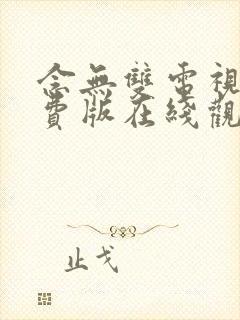 念無雙電視
費版在綫觀
止戈